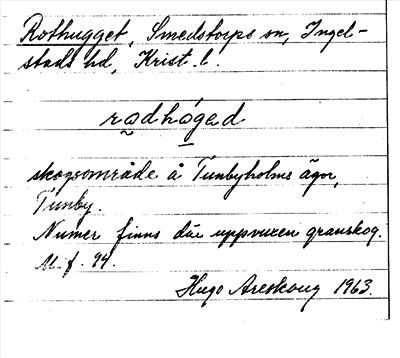 Rothugget, Smedstorps sn, Ingel-
stads hd, Krist. l.
rodhoged
skogsområde å Tunbyholms ägor,
Tunby.
Numer finns där uppvuxen granskog.
M. f. 94.
Hugo Areskoug 1963.